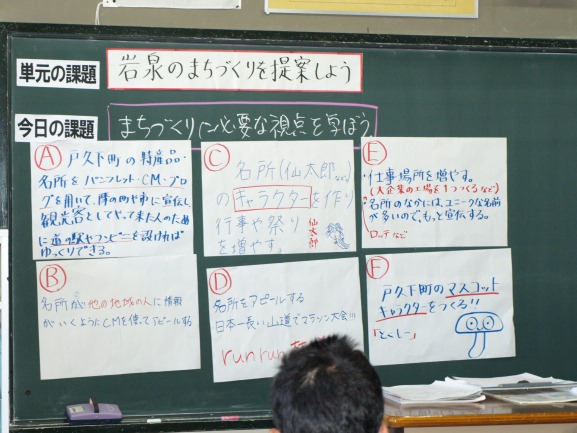 単元の課題
岩泉のまちづくりを提案しよう
今日の課題
まちづくりに必要な視点を学ぼう
A
戸久下町の特産品・
名所をパンフレット・CM・ブロ
グを用いて、隣の町や市に宣伝し
観光客としてやって来た人のため
に道の駅やコンビニを設ければ
ゆっくりできる。
B
名所が他の地域の人に情報
がいくようにCMを使ってアピールする
C
名所(仙太郎など)
のキャラクターを作り
行事や祭り
を増やす。
仙太郎
D
名所をアピールする
日本一長い山道でマラソン大会!!!
run run
E
仕事場所を増やす。
(大企業の工場を1つつくるなど)
名所のなかには、ユニークな名前
が多いので、もっと宣伝する。
ロッテなど
F
戸久下町のマスコット
キャラクターをつくる!!